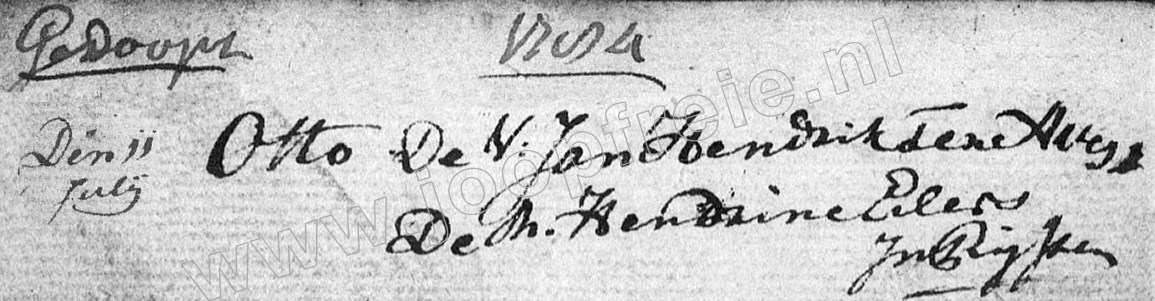 Gedoopt
Den 11 Otto De V. Jan Hendrik
July De M. Hendrine Eilers
In Rijssen
www.joopfreie.nl